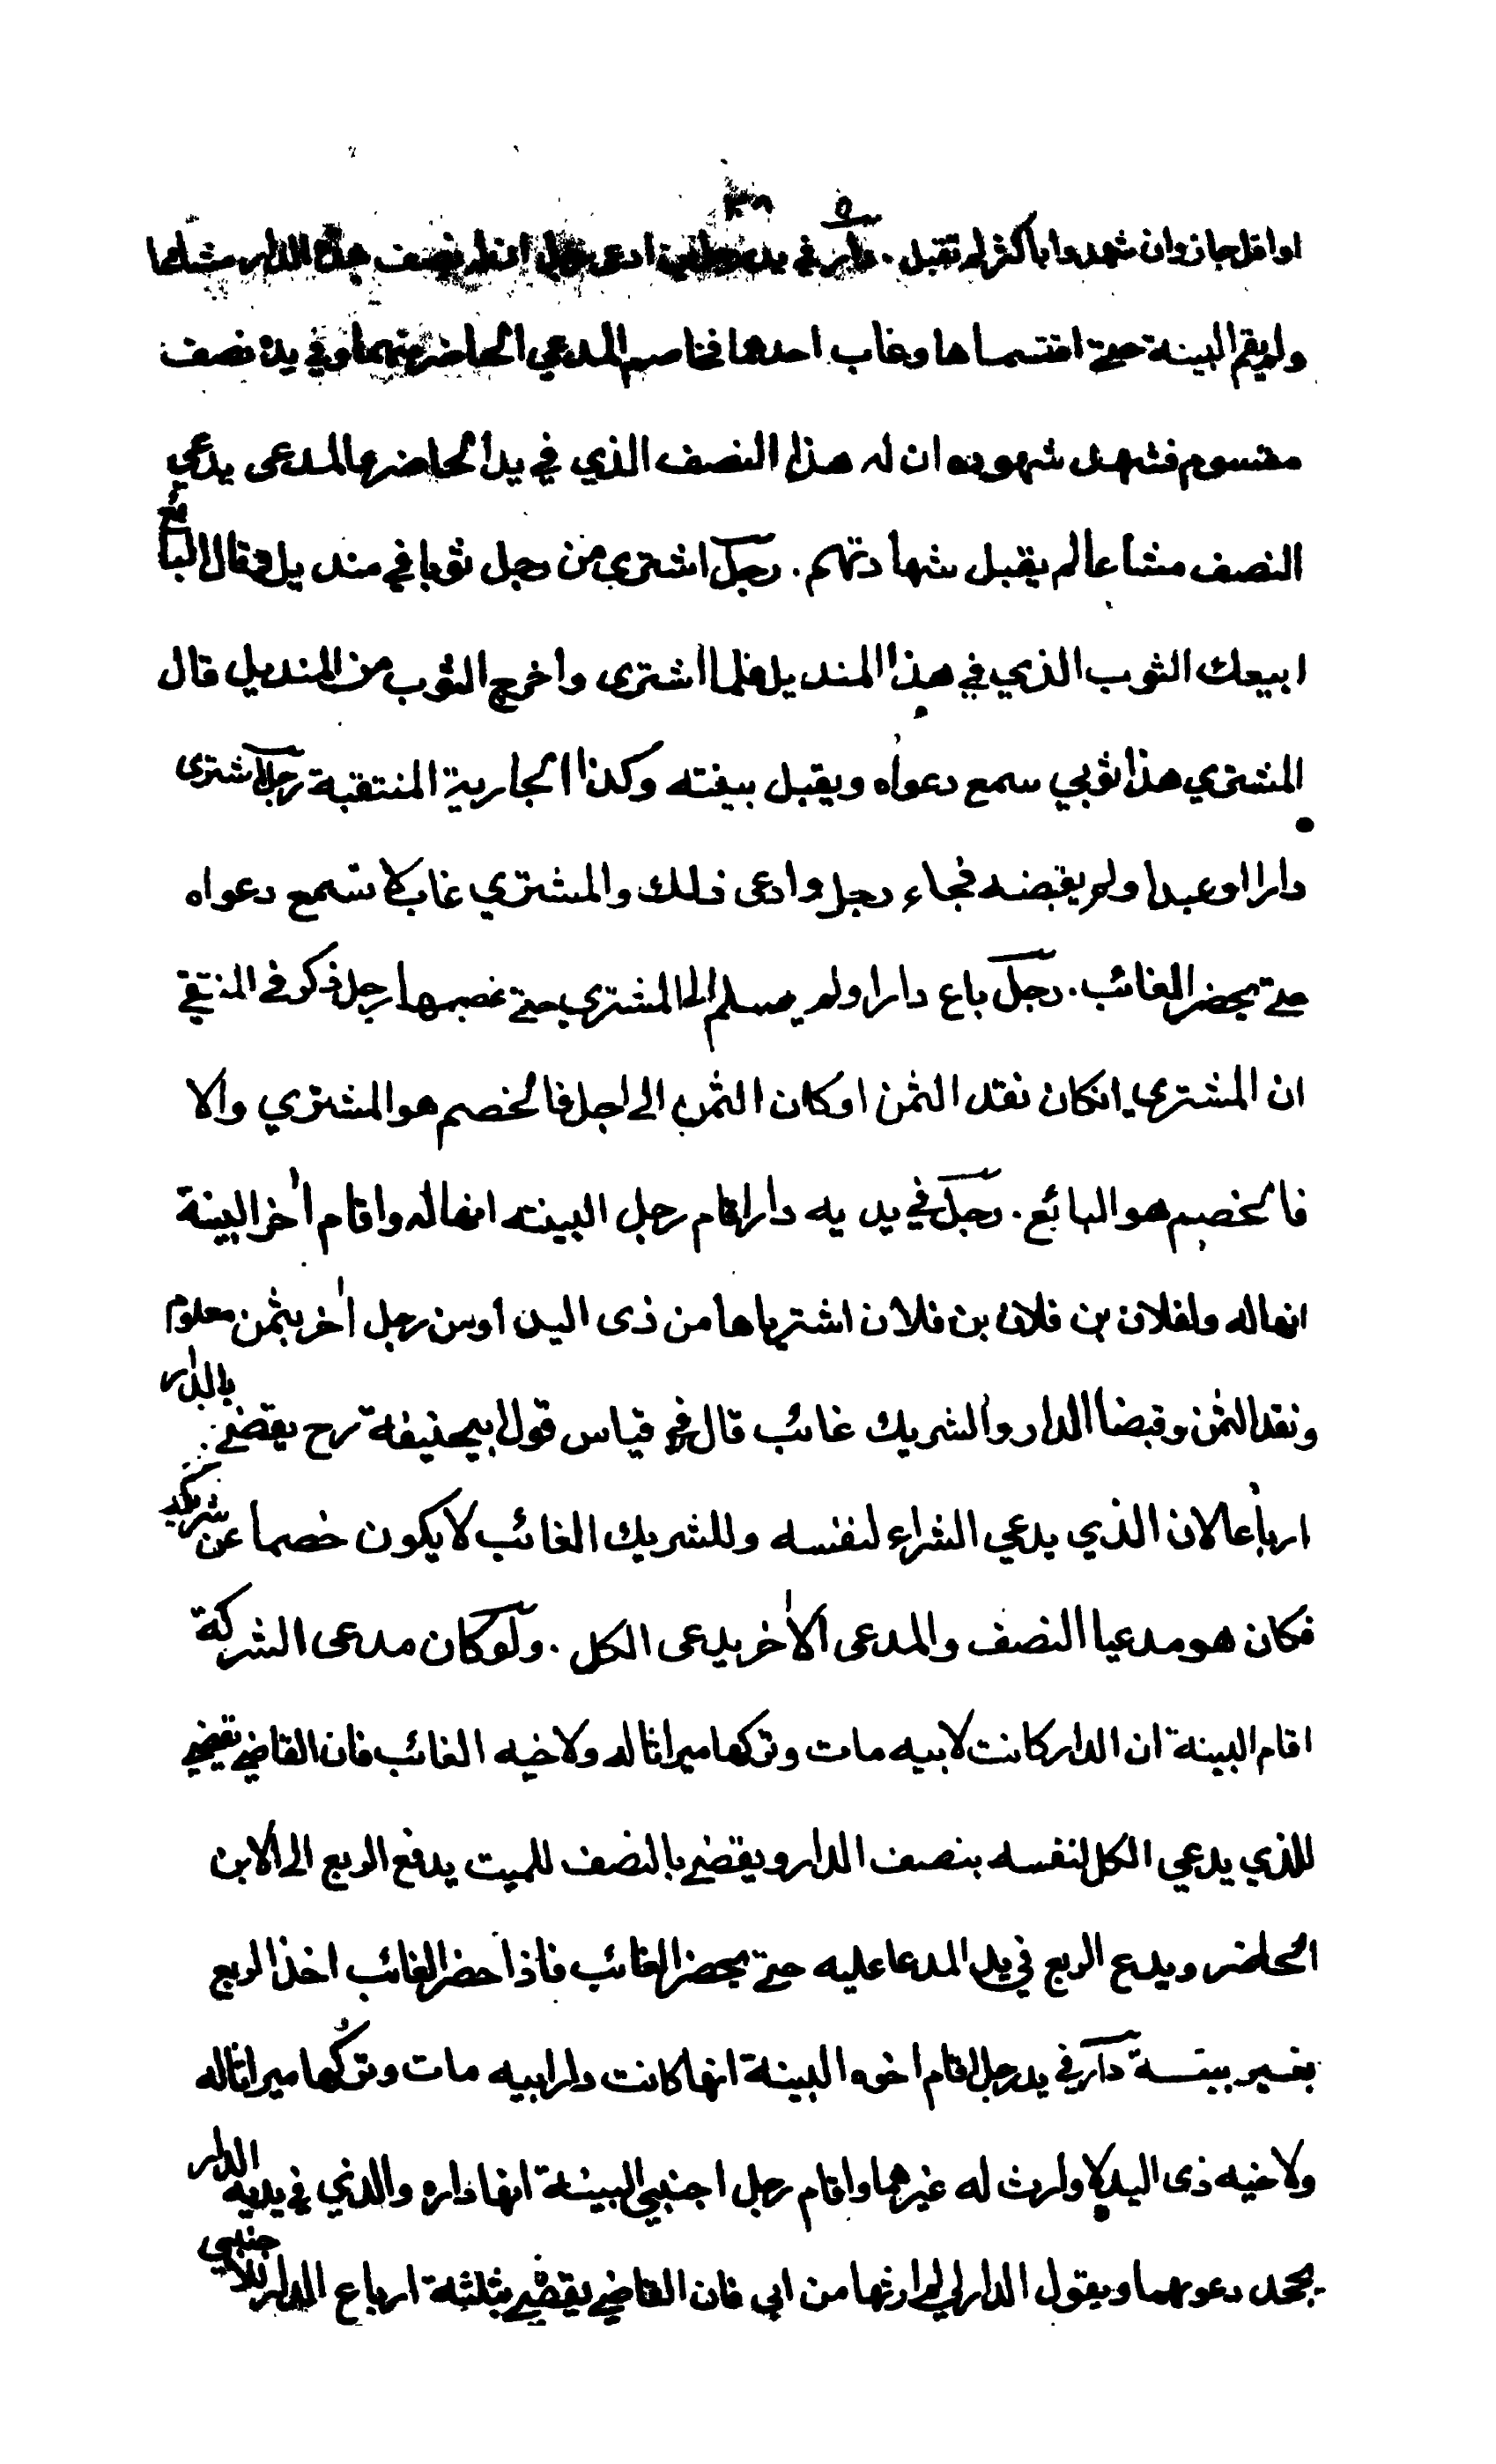 او اقل جاز وان شهدوا باكثر لم تقبل . دار في يد رجلين ادعى رجل ان له نصف هذه الدار مشاعا
ولم يقم البينة حتى اقتسماها وغاب احدهما فخاصم المدعي الحاضر منهما وفي يده نصف
مقسوم فشهد شهوده ان له هذا النصف الذي في يد الحاضر والمدعى يدعي
النصف مشاعا لم يقبل شهادتهم . رجل اشترى من رجل ثوبا في منديل وقال البائع
ابيعك الثوب الذي في هذا المنديل فلما اشترى واخرج الثوب من المنديل قال
المشتري هذا ثوبي سمع دعواه ويقبل بينته وكذا الجارية المنتقبة رجل اشترى
دارا او عبدا ولم يقبضه فجاء رجل وادعى ذلك والمشتري غاب لا تسمع دعواه
حتى يحضر الغائب . رجل باع دارا ولم يسلم الى المشتري حتى غصبها رجل ذكر في المنتقى
ان المشتري انكان نقد الثمن او كان الثمن الى اجل فالخصم هو المشتري والا
فالخصم هو البائع . رجل في يديه دار اقام رجل البينه انها له واقام اٰخر البينة
انها له ولفلان بن فلان بن فلان اشترياها من ذى اليد او من رجل اٰخر بثمن معلوم
ونقد الثمن وقبضا الدار والشريك غائب قال في قياس قول ابيحنيفة رح يقضى بالدار
ارباعا لان الذي يدعي الشراء لنفسه وللشريك الغائب لا يكون خصما عن شريكه
فكان هو مدعيا النصف والمدعى الاٰخر يدعى الكل . ولو كان مدعى الشركة
اقام البينة ان الدار كانت لابيه مات وتركها ميراثا له ولاخيه الغائب فان القاضي يقضي
للذي يدعي الكل لنفسه بنصف الدار ويقضى بالنصف للميت يدفع الربع الى الابن
الحاضر ويدع الربع في يد المدعا عليه حتى يحضر الغائب فاذا حضر الغائب اخذ الربع
بغير بينة دار في يد رجل اقام اخوه البينة انها كانت دار ابيه مات وتركها ميراثا له
ولاخيه ذى اليد لا وارث له غيرهما واقام رجل اجنبي البينة انها داره والذي في يديه الدار
يجحد دعوهما ويقول الدار لي لم ارثها من ابي فان القاضي يقضي بثلثة ارباع الدار للاجنبي